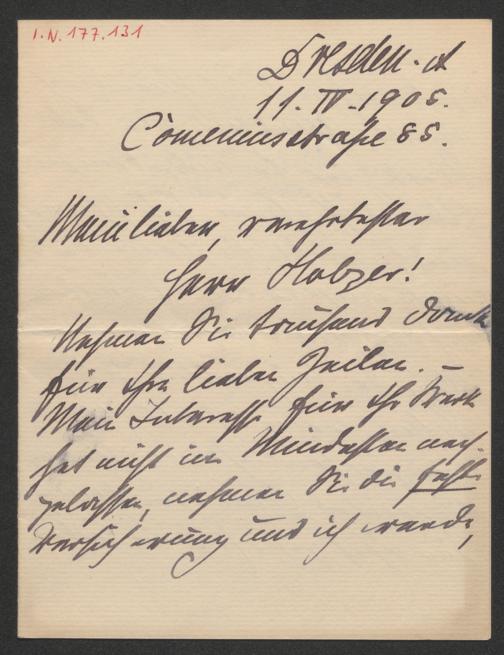 I.N. 177.131
Dresden-A
11-IV-1905.
Comeniusstraße 85.
Mein lieber, verehrtester
Herr Holzer!
Nehmen Sie tausend Dank
für Ihre lieben Zeilen. –
Mein Interesse für Ihr Werk
hat nicht im Mindesten nach-
gelassen, nehmen Sie die feste
Versicherung und ich werde,